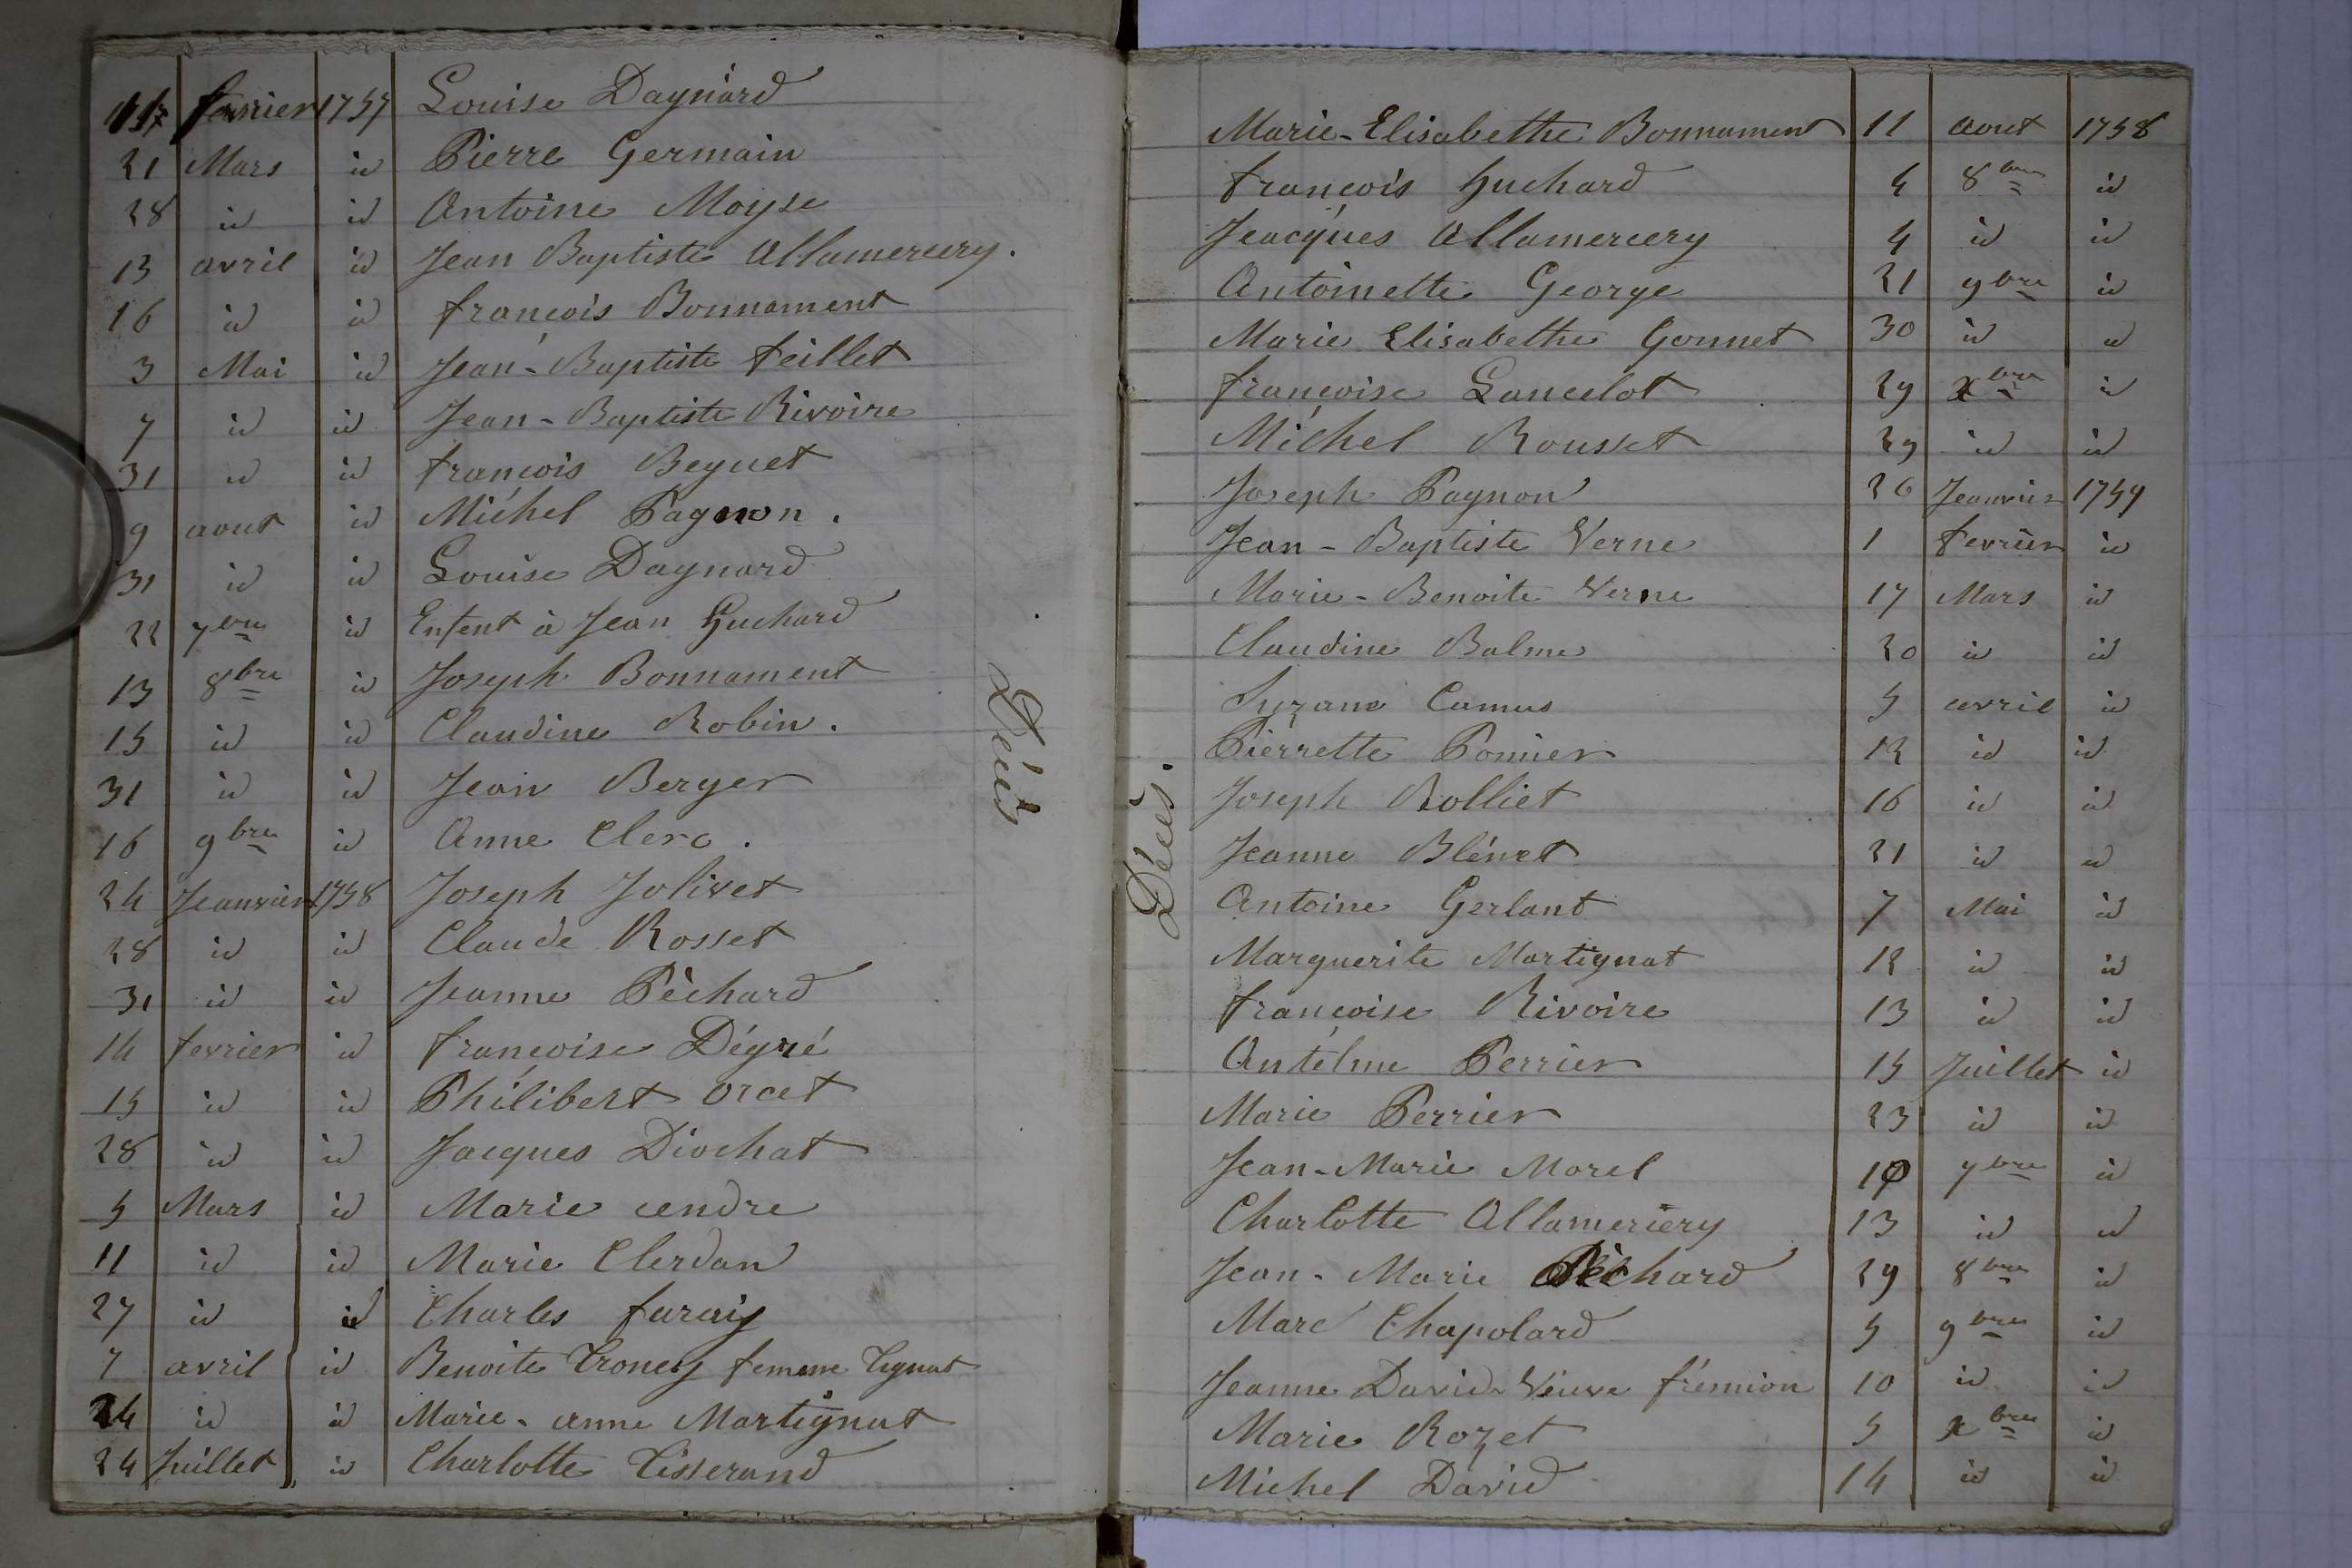 fevrier 1757 Louise Daynard
21 Mars id Pierre Germain
28 id id Antoine Moyse
13 avril id Jean Baptiste Allamercery.
16 id id françois Bonnament
3 Mai id Jean-Baptiste feillet
7 id id Jean-Baptiste Rivoire
31 id id françois Beguet
9 aout id Michel Pagnon.
31 id id Louise Daynard
22 7bre id Enfent à Jean Guichard
13 8bre id Joseph Bonnament
15 id id Claudine Robin.
31 id id Jean Berger
16 9bre id Anne Clerc.
24 Jeanvier 1758 Joseph Jolivet
28 id id Claude Rosset
31 id id Jeanne Péchard
14 fevrier id françoise Dégré
15 id id Philibert Orcet
28 id id Jacques Diochat
5 Mars id Marie cendre
11 id id Marie Clerdan
27 id id Charles faraiy
7 avril id Benoite Troncy femme Tignat
24 id id Marie-anne Martignat
24 Juillet id Charlotte Tisserand
Décès
Décès.
Marie-Elisabethe Bonnament 11 aout 1758
françois Guchard 4 8bre id
Jeacques Allamercery 4 id id
Antoinette George 21 9bre id
Marie Elisabethe Gonnet 30 id id
françoise Lancelot 29 xbre id
Michel Rousset 29 id id
Joseph Pagnon 26 Jeanvier 1759
Jean-Baptiste Verne 1 fevrier id
Marie-Benoite Verne 17 Mars id
Claudine Balme 20 id id
Suzane Camus 5 avril id
Pierrette Ponnier 12 id id
Joseph Rolliet 16 id id
Jeanne Blénet 21 id id
Antoine Gerlant 7 Mai id
Marguerite Martignat 12 id id
françoise Rivoire 13 id id
Antélme Perrier 15 Juillet id
Marie Perrier 23 id id
Jean-Marie Morel 10 7bre id
Charlotte Allameriery 13 id id
Jean-Marie Péchard 29 8bre id
Marc Chapolard 5 9bre id
Jeanne David Veuve frémion 10 id id
Marie Rozet 5 xbre id
Michel David 14 id id